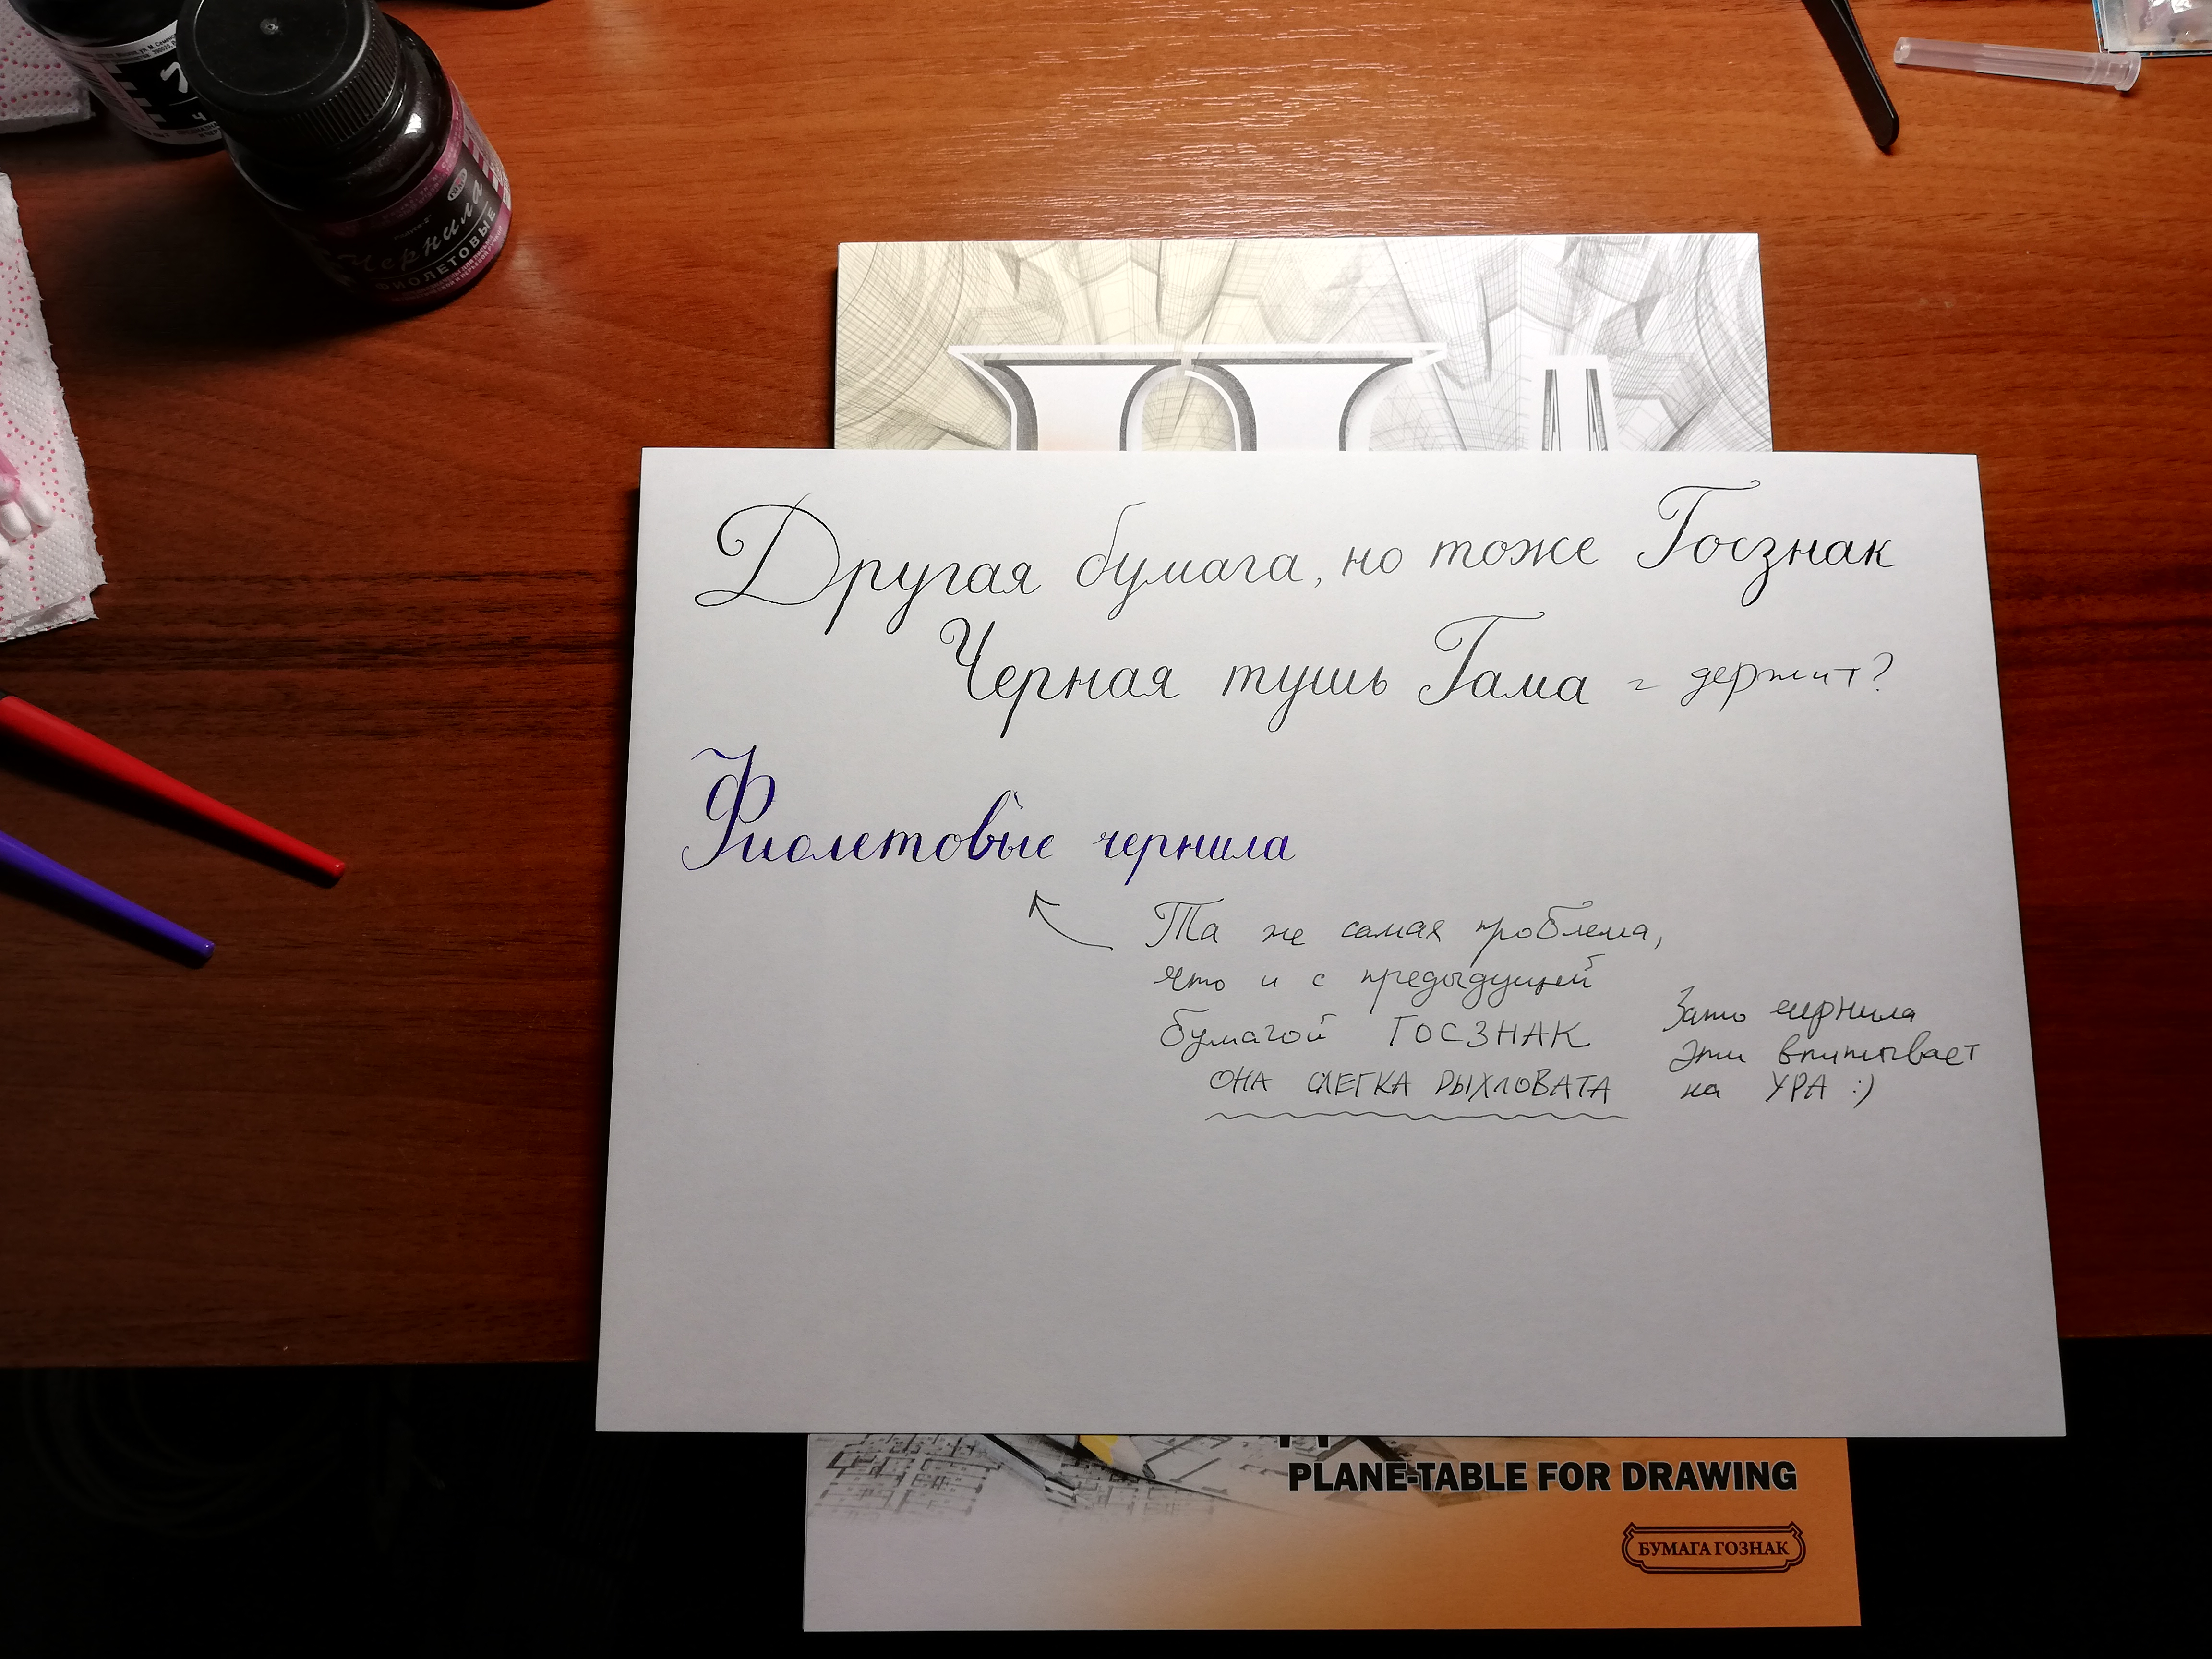 Чернила
ФИОЛЕТОВЫЕ
Другая бумага, но тоже Госзнак
Черная тушь Гама - держит?
Фиолетовые чернила
Та же самая проблема,
что и с предыдущей
бумагой ГОСЗНАК
ОНА СЛЕГКА РЫХЛОВАТА
Зато чернила
эти впитывает
на УРА :)
PLANE-TABLE FOR DRAWING
БУМАГА ГОЗНАК